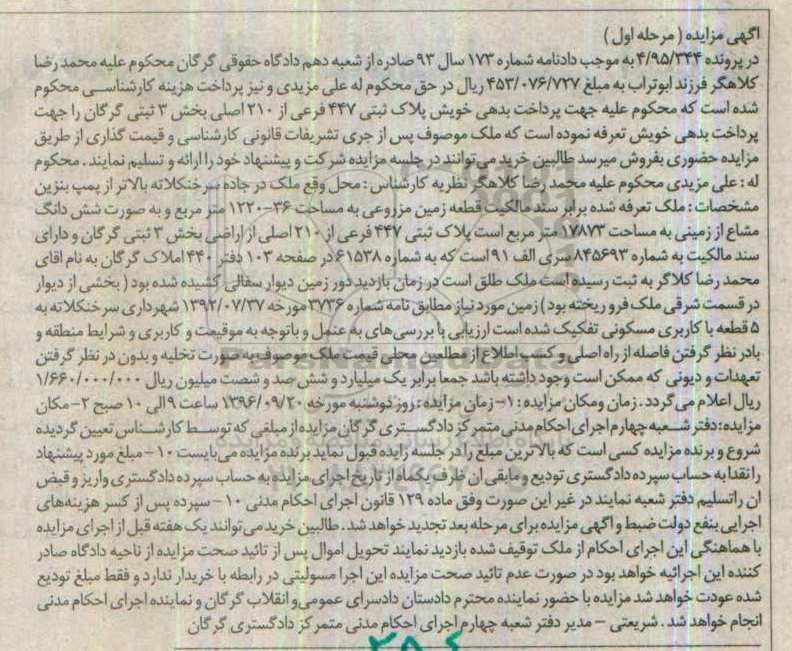 آگهی مزایده ( مرحله اول )
در پرونده ۴/۹۵/۳۴۴ به موجب دادنامه شماره ۱۷۳ سال ۹۳ صادره از شعبه دهم دادگاه حقوقی گرگان محکوم علیه محمد رضا
کلاهگر فرزند ابوتراب به مبلغ ۴۵۳/۰۷۶/۷۲۷ ریال در حق محکوم له علی مزیدی و نیز پرداخت هزینه کارشناسی محکوم
شده است که محکوم علیه جهت پرداخت بدهی خویش پلاک ثبتی ۴۴۷ فرعی از ۲۱۰ اصلی بخش ۳ ثبتی گرگان را جهت
پرداخت بدهی خویش تعرفه نموده است که ملک موصوف پس از جری تشریفات قانونی کارشناسی و قیمت گذاری از طریق
مزایده حضوری بفروش میرسد طالبین خرید می‌توانند در جلسه مزایده شرکت و پیشنهاد خود را ارائه و تسلیم نمایند . محکوم
له : علی مزیدی محکوم علیه محمد رضا کلاهگر نظریه کارشناس : محل وقع ملک در جاده سرخنکلاته بالاتر از پمپ بنزین
مشخصات : ملک تعرفه شده برابر سند مالکیت قطعه زمین مزروعی به مساحت ۳۶-۱۲۲۰ متر مربع و به صورت شش دانگ
مشاع از زمینی به مساحت ۱۷۸۷۳ متر مربع است پلاک ثبتی ۴۴۷ فرعی از ۲۱۰ اصلی از اراضی بخش ۳ ثبتی گرگان و دارای
سند مالکیت به شماره ۸۴۵۶۹۳ سری الف ۹۱ است که به شماره ۶۱۵۳۸ در صفحه ۱۰۳ دفتر ۴۴۰ املاک گرگان به نام اقای
محمد رضا کلاگر به ثبت رسیده است ملک طلق است در زمان بازدید دور زمین دیوار سفالی کشیده شده بود ( بخشی از دیوار
در قسمت شرقی ملک فرو ریخته بود ) زمین مورد نیاز مطابق نامه شماره ۳۷۳۶ مورخه ۱۳۹۲/۰۷/۳۷ شهرداری سرخنکلاته به
۵ قطعه با کاربری مسکونی تفکیک شده است ارزیابی با بررسی های به عنمل و باتوجه به موقیعت و کاربری و شرایط منطقه و
بادر نظر گرفتن فاصله از راه اصلی و کسب اطلاع از مطلعین محلی قیمت ملک موصوف به صورت تخلیه و بدون در نظر گرفتن
تعهدات و دیونی که ممکن است وجود داشته باشد جمعا برابر یک میلیارد و شش صد و شصت میلیون ریال ۱/۶۶۰/۰۰۰/۰۰۰
ریال اعلام می گردد . زمان ومکان مزایده : ۱- زمان مزایده : روز دوشنبه مورخه ۱۳۹۶/۰۹/۲۰ ساعت ۹ الی ۱۰ صبح ۲- مکان
مزایده : دفتر شعبه چهارم اجرای احکام مدنی متمرکز دادگستری گرگان مزایده از مبلغی که توسط کارشناس تعیین گردیده
شروع و برنده مزایده کسی است که بالاترین مبلغ را در جلسه زایده قبول نماید برنده مزایده می‌بایست ۱۰ - مبلغ مورد پیشنهاد
را نقدا به حساب سپرده دادگستری تودیع و مابقی ان ظرف یکماه از تاریخ اجرای مزایده به حساب سپرده دادگستری واریز و قبض
ان را تسلیم دفتر شعبه نمایند در غیر این صورت وفق ماده ۱۲۹ قانون اجرای احکام مدنی ۱۰ - سپرده پس از کسر هزینه‌های
اجرایی بنفع دولت ضبط و اگهی مزایده برای مرحله بعد تجدید خواهد شد . طالبین خرید می‌توانند یک هفته قبل از اجرای مزایده
با هماهنگی این اجرای احکام از ملک توقیف شده بازدید نمایند تحویل اموال پس از تائید صحت مزایده از ناحیه دادگاه صادر
کننده این اجرائیه خواهد بود در صورت عدم تائید صحت مزایده این اجرا مسولیتی در رابطه با خریدار ندارد و فقط مبلغ تودیع
شده عودت خواهد شد مزایده با حضور نماینده محترم دادستان دادسرای عمومی و انقلاب گرگان و نماینده اجرای احکام مدنی
انجام خواهد شد . شریعتی - مدیر دفتر شعبه چهارم اجرای احکام مدنی متمرکز دادگستری گرگان